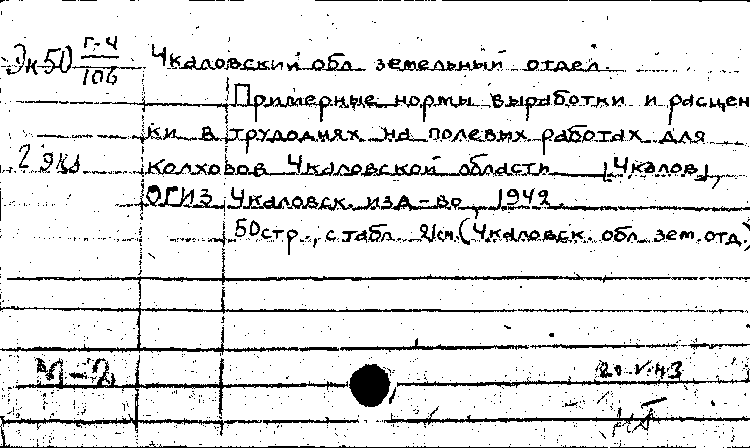 Эк50 Г-4/106 Чкаловский обл земельный отдел.
Примерные нормы выработки и расцен
ки в трудоднях на полевых работах для
2 экз колхозов Чкаловской области [Чкалов],
ОГИЗ Чкаловск. изд-во, 1942.
50стр., с табл 21см. (Чкаловск. обл. зем. отд.)
М-2 20.V.43